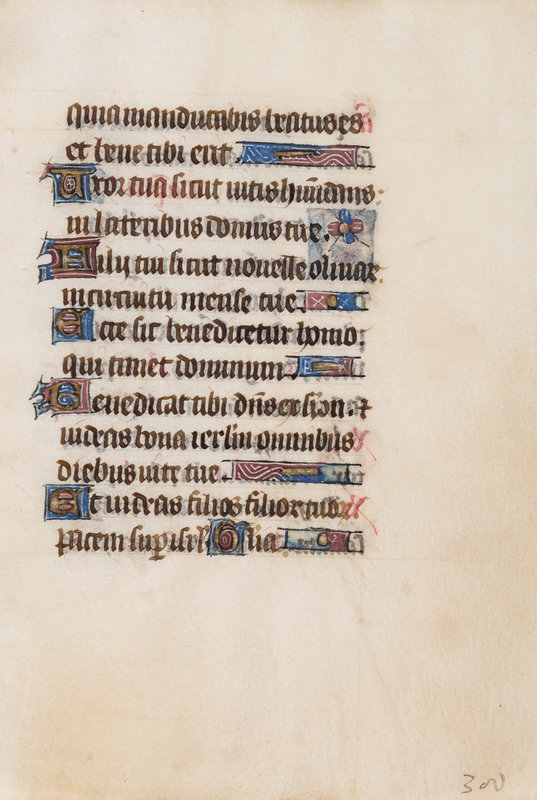 quia manducabis beatus es
et bene tibi erit.
Uxor tua sicut uitis habūdans:
in lateribus domus tue.
Filij tui sicut nouelle oliuar̄
in circuitu mense tue.
Ecce sic benedicetur homo:
qui timet dominum.
Benedicat tibi dn̄s ex syon: ⁊
uideas bona ierl̄m omnibus
diebus uite tue.
Et uideas filios filior̄ tuor̄
pacem sup̄ isrl̄ Glīa